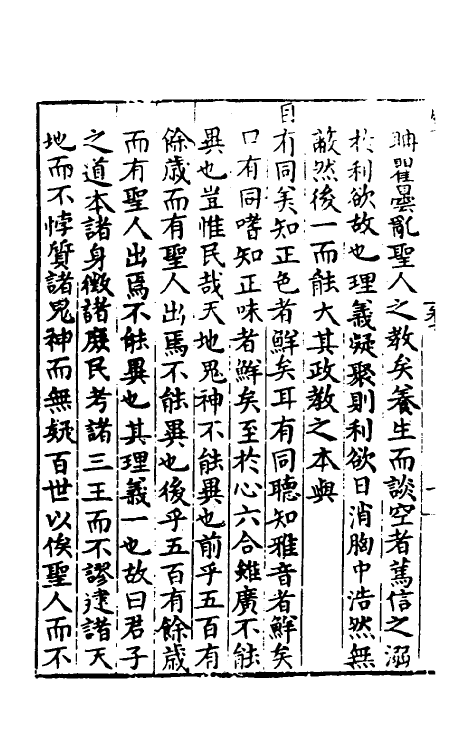 聃瞿曇亂聖人之教矣養生而談空者篤信之溺
於利欲故也理義凝聚則利欲日消胸中浩然無
蔽然後一而能大其政教之本與
目有同美知正色者鮮矣耳有同聽知雅音者鮮矣
口有同嗜知正味者鮮矣至於心六合雖廣不能
異也豈惟民哉天地鬼神不能異也前乎五百有
餘歲而有聖人出焉不能異也後乎五百有餘歲
而有聖人出焉不能異也其理義一也故曰君子
之道本諸身徵諸庶民考諸三王而不謬建諸天
地而不悖質諸鬼神而無疑百世以俟聖人而不